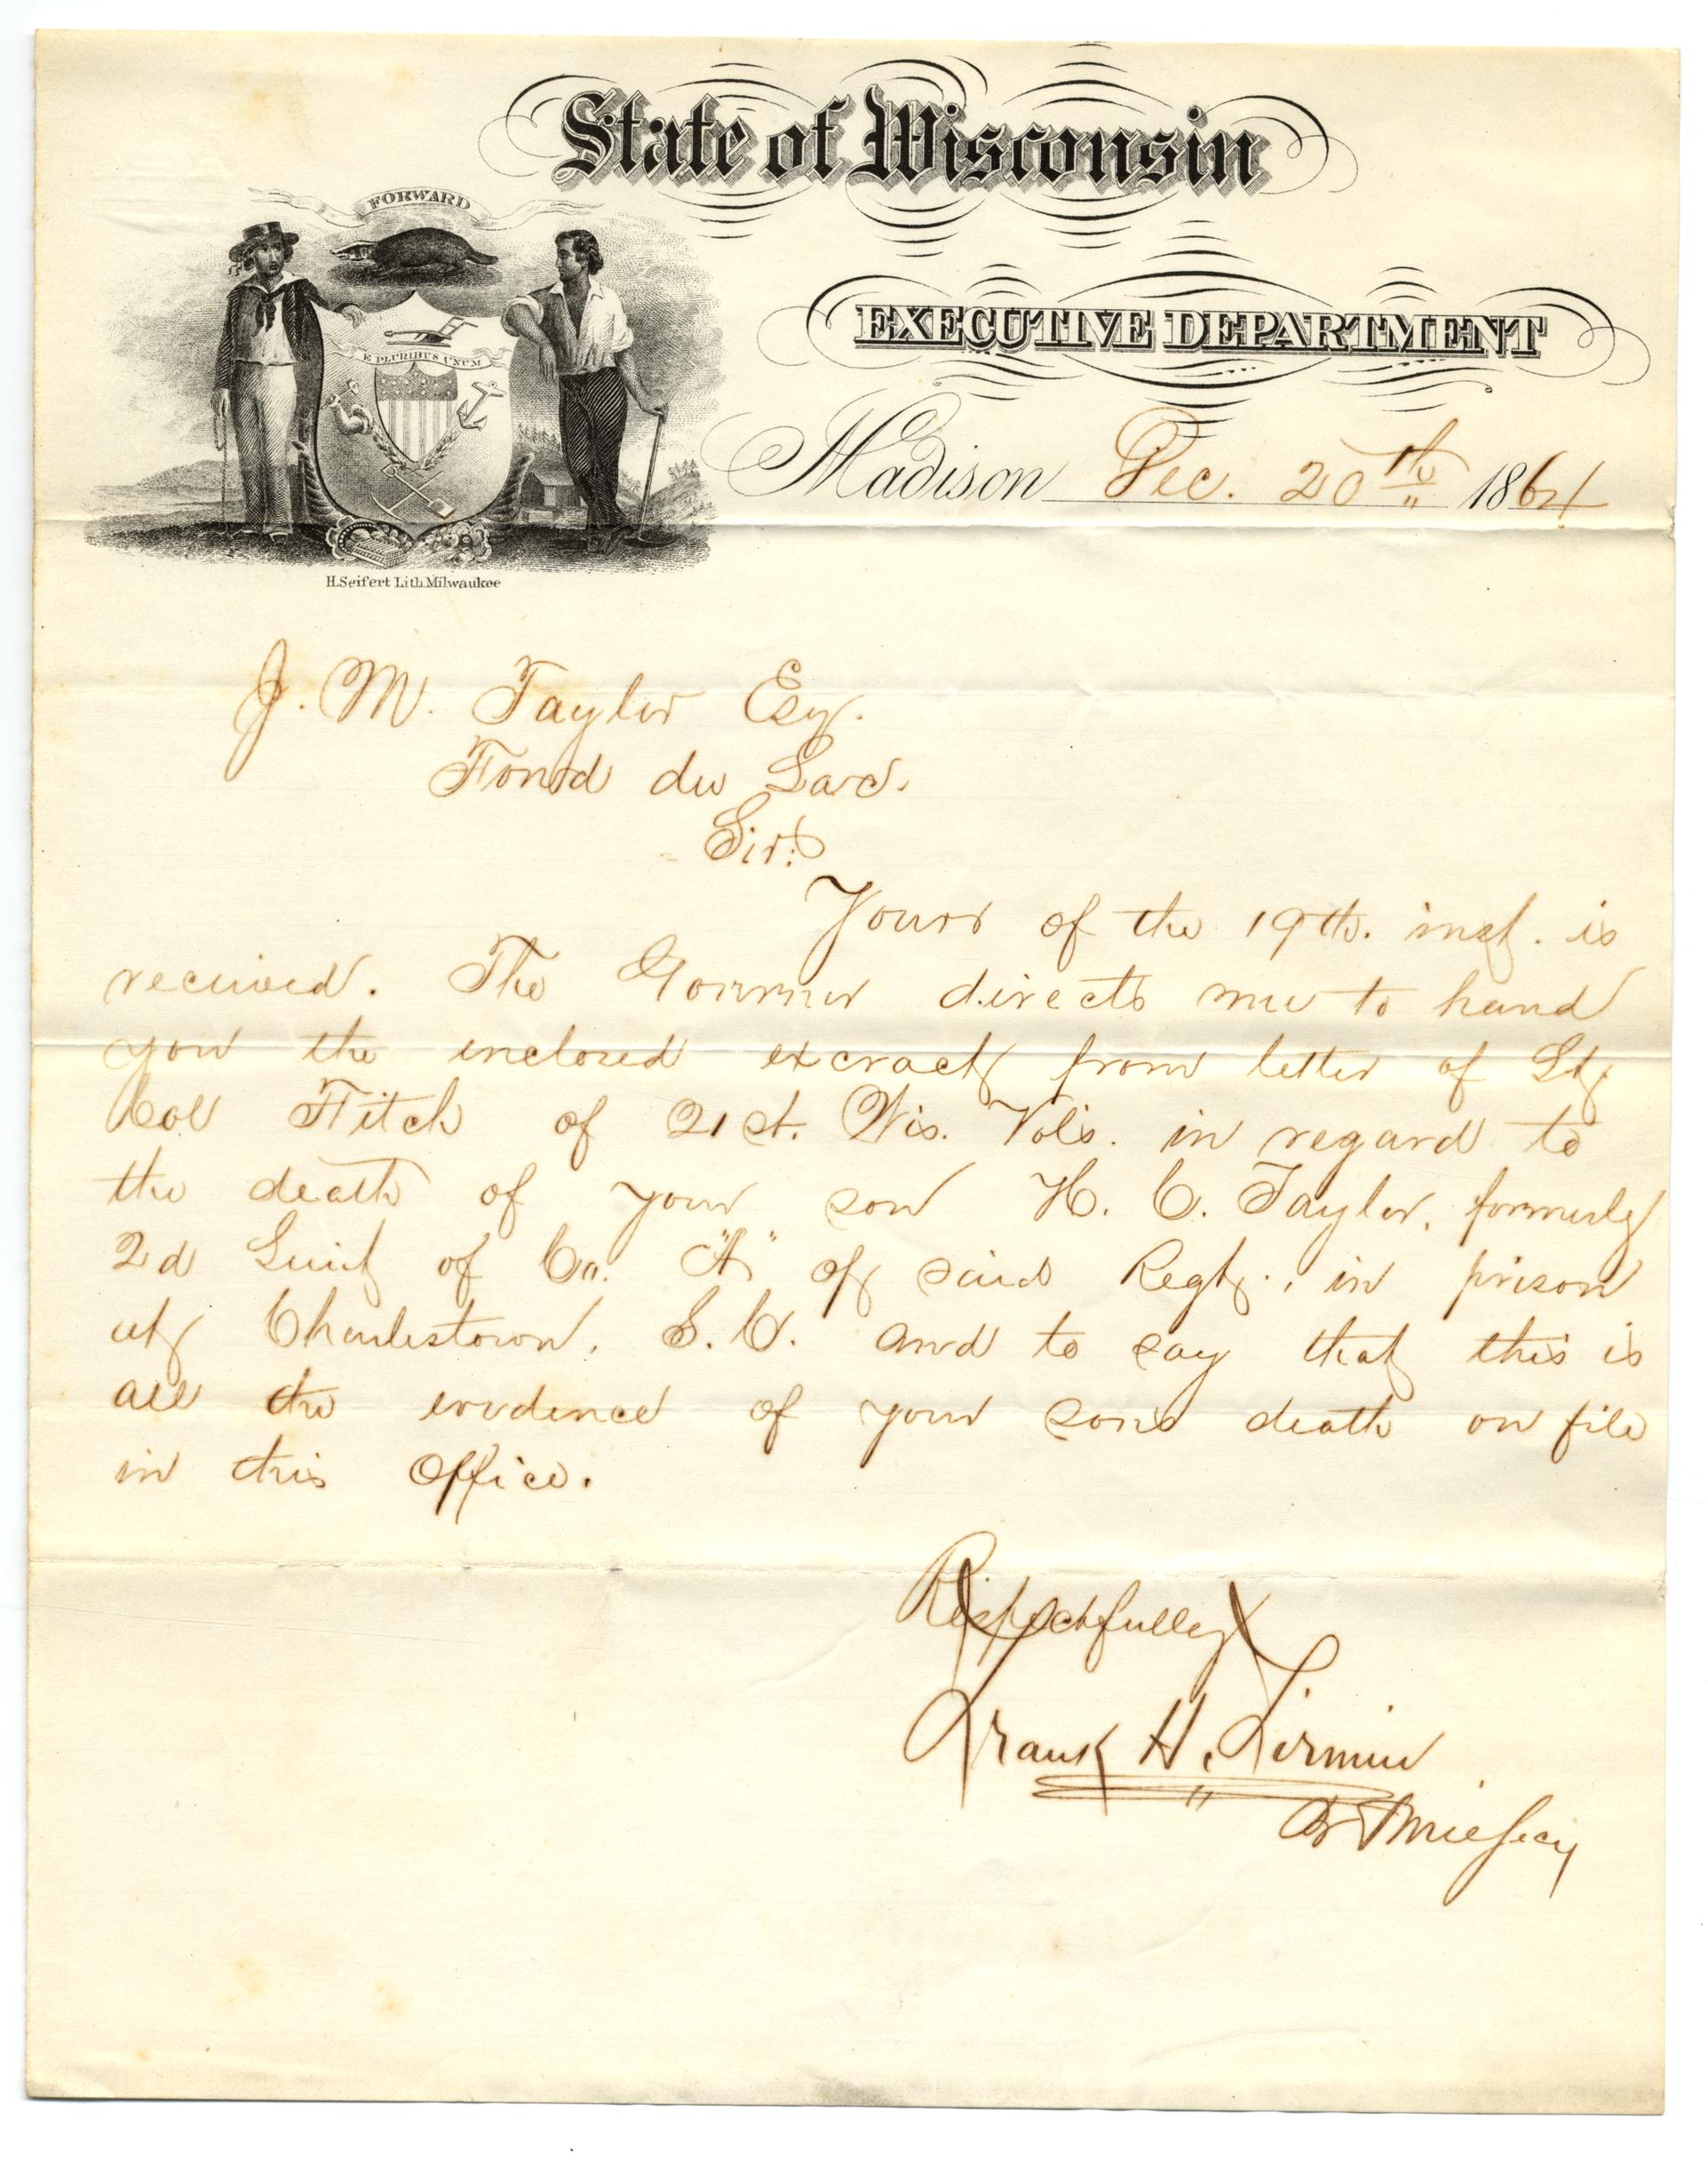 State of Wisconsin
FORWARD
E PLURIBUS UNUM
EXECUTIVE DEPARTMENT
Madison Dec. 20th 1864
H. Seifert Lith. Milwaukee
J. M. Taylor Esq.
Fond du Lac.
Sir:
Yours of the 19th. inst. is
received. The Governor directs me to hand
you the enclosed excract from letter of Lt
Col Fitch of 21st. Wis. Vols. in regard to
the death of your son H. C. Taylor, formerly
2d Lieut of Co. "A" of said Regt., in prison
at Charlestown, S. C. and to say that this is
all the evidence of your sons death on file
in this Office.
Respectfully
Frank H. Firmin